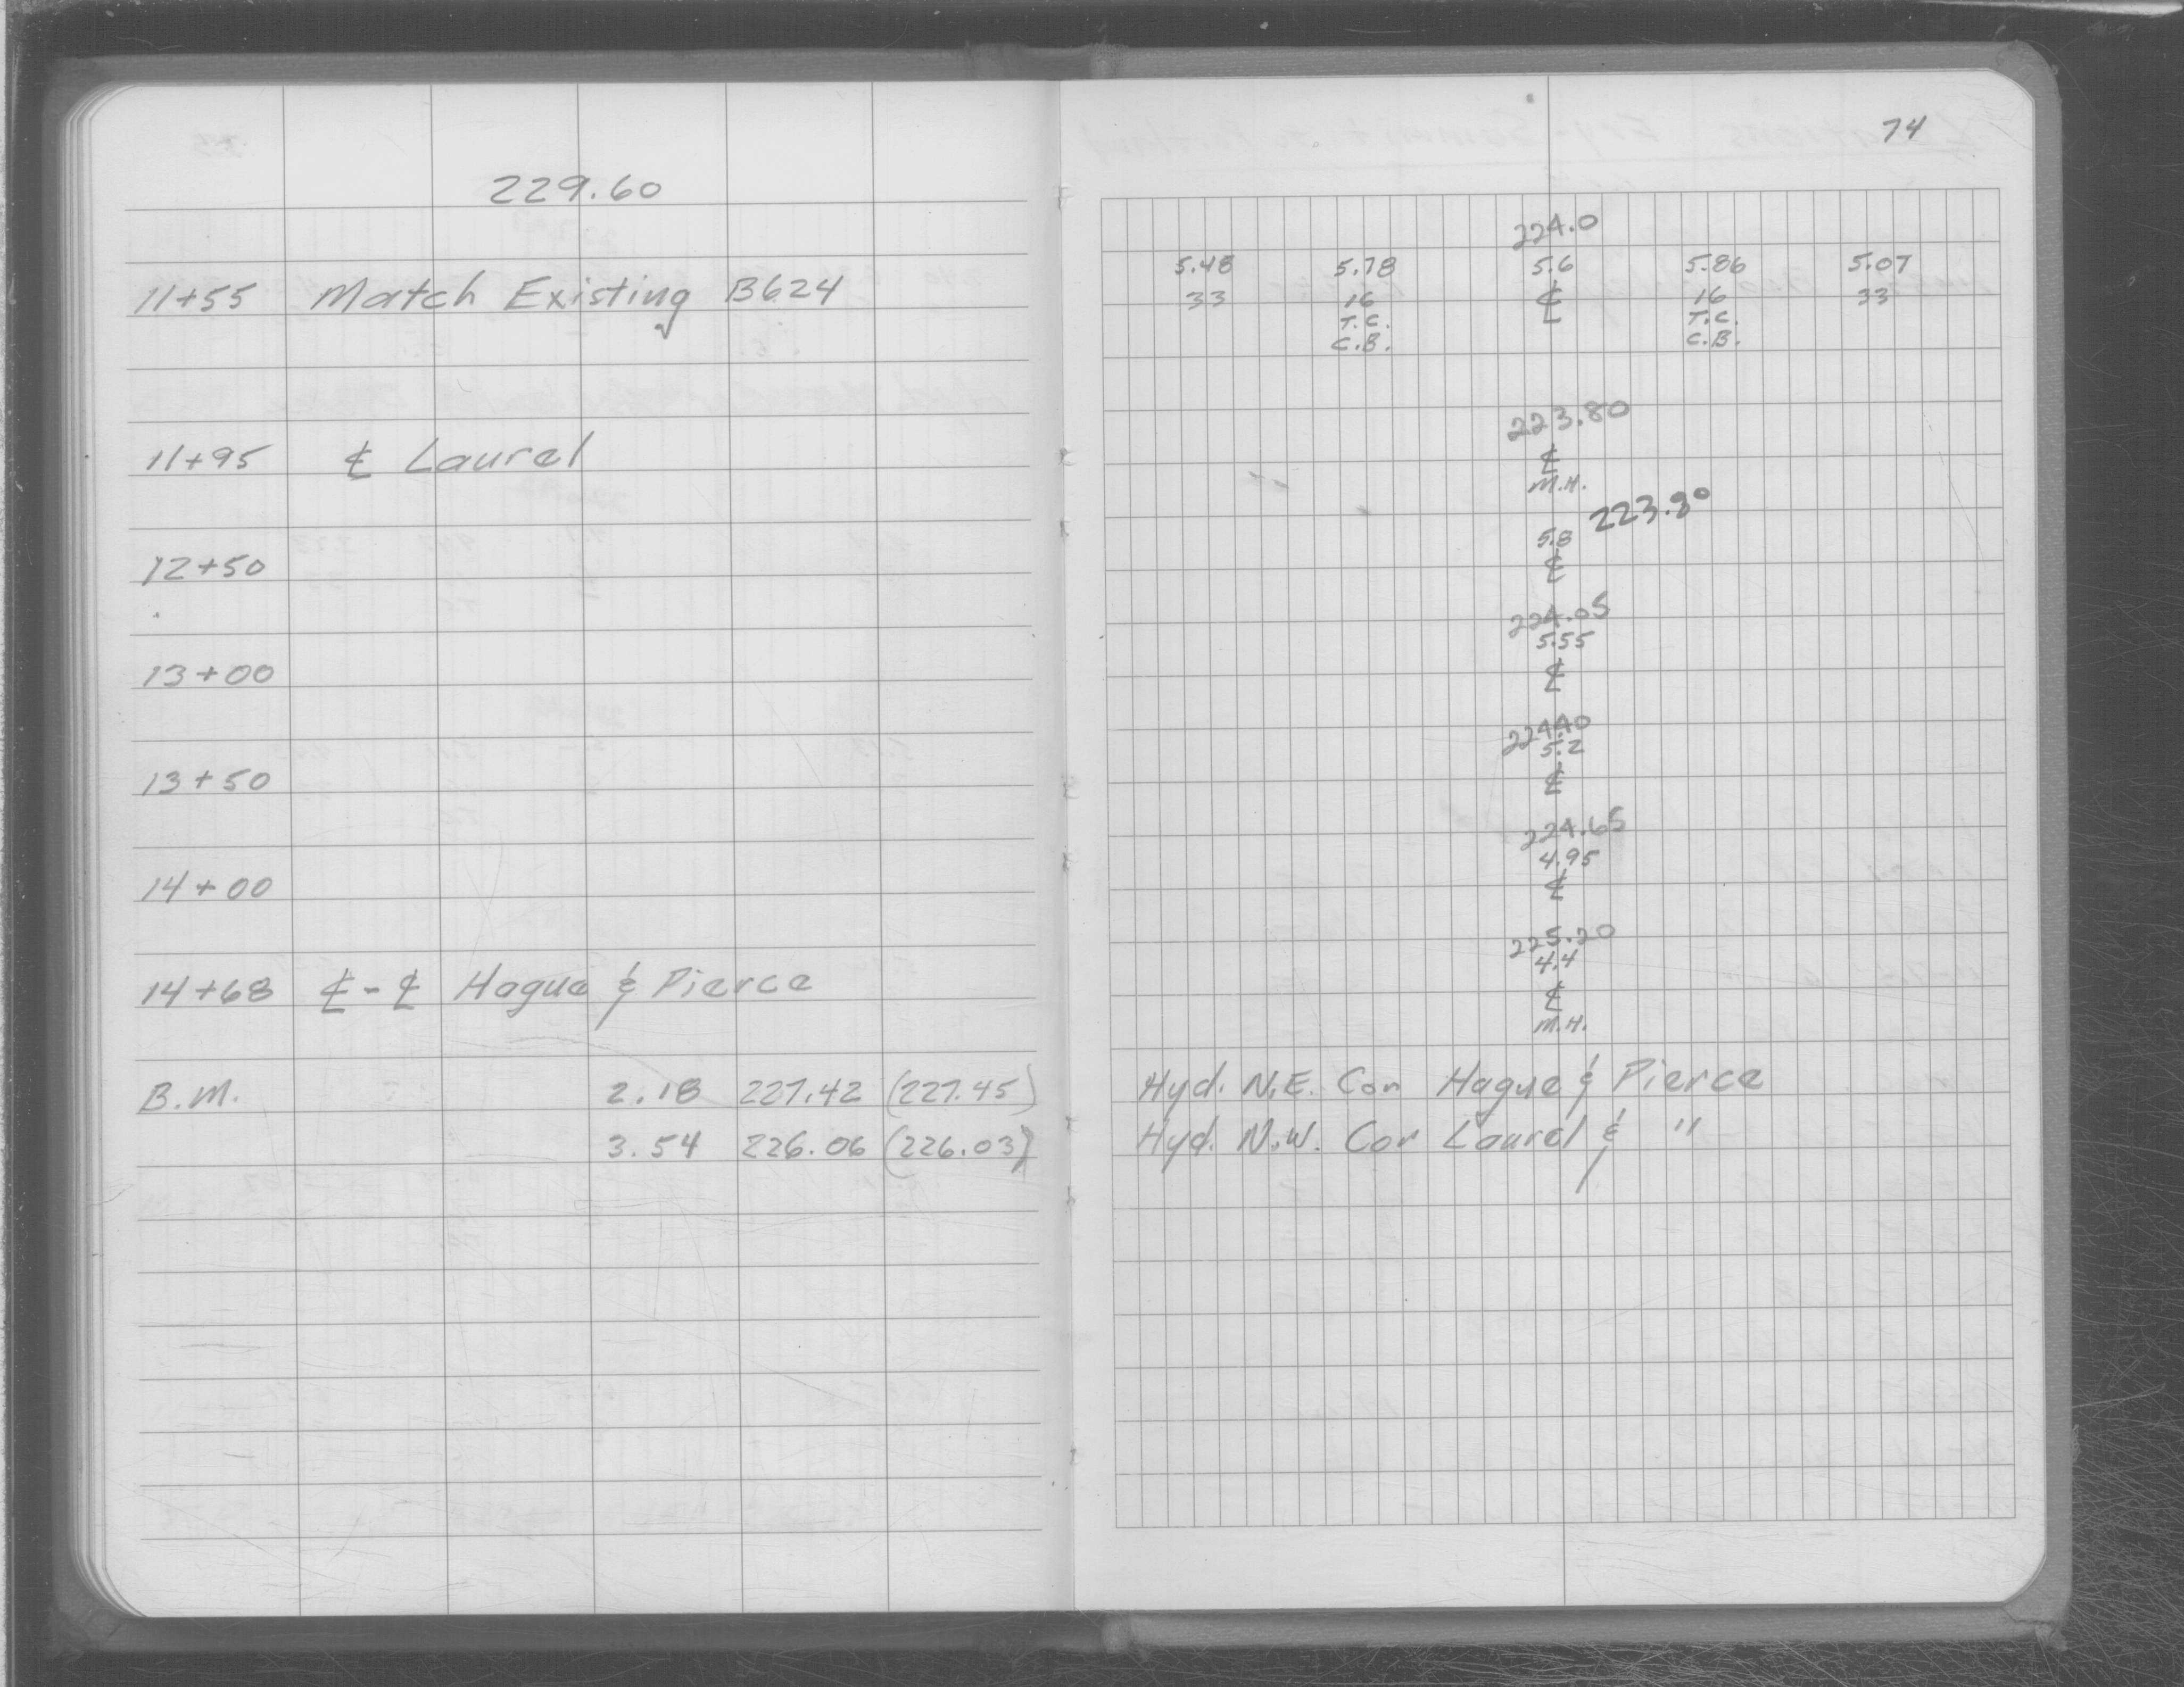 229.60
11+55 Match Existing B624
11+95 ℄ Laurel
12+50
13+00
13+50
14+00
14+68 ℄ - ℄ Hague & Pierce
B.M. 2.18 227.42 (227.45)
3.54 226.06 (226.03)
74
224.0
5.48 5.78 5.6 5.86 5.07
33 16 ℄ 16 33
T.C. T.C.
C.B. C.B.
223.80
℄
M.H.
223.80
5.8
℄
224.05
5.55
℄
224.40
5.2
℄
224.65
4.95
℄
225.20
4.4
℄
M.H.
Hyd. N.E. Cor Hague & Pierce
Hyd. N.W. Cor Laurel & "